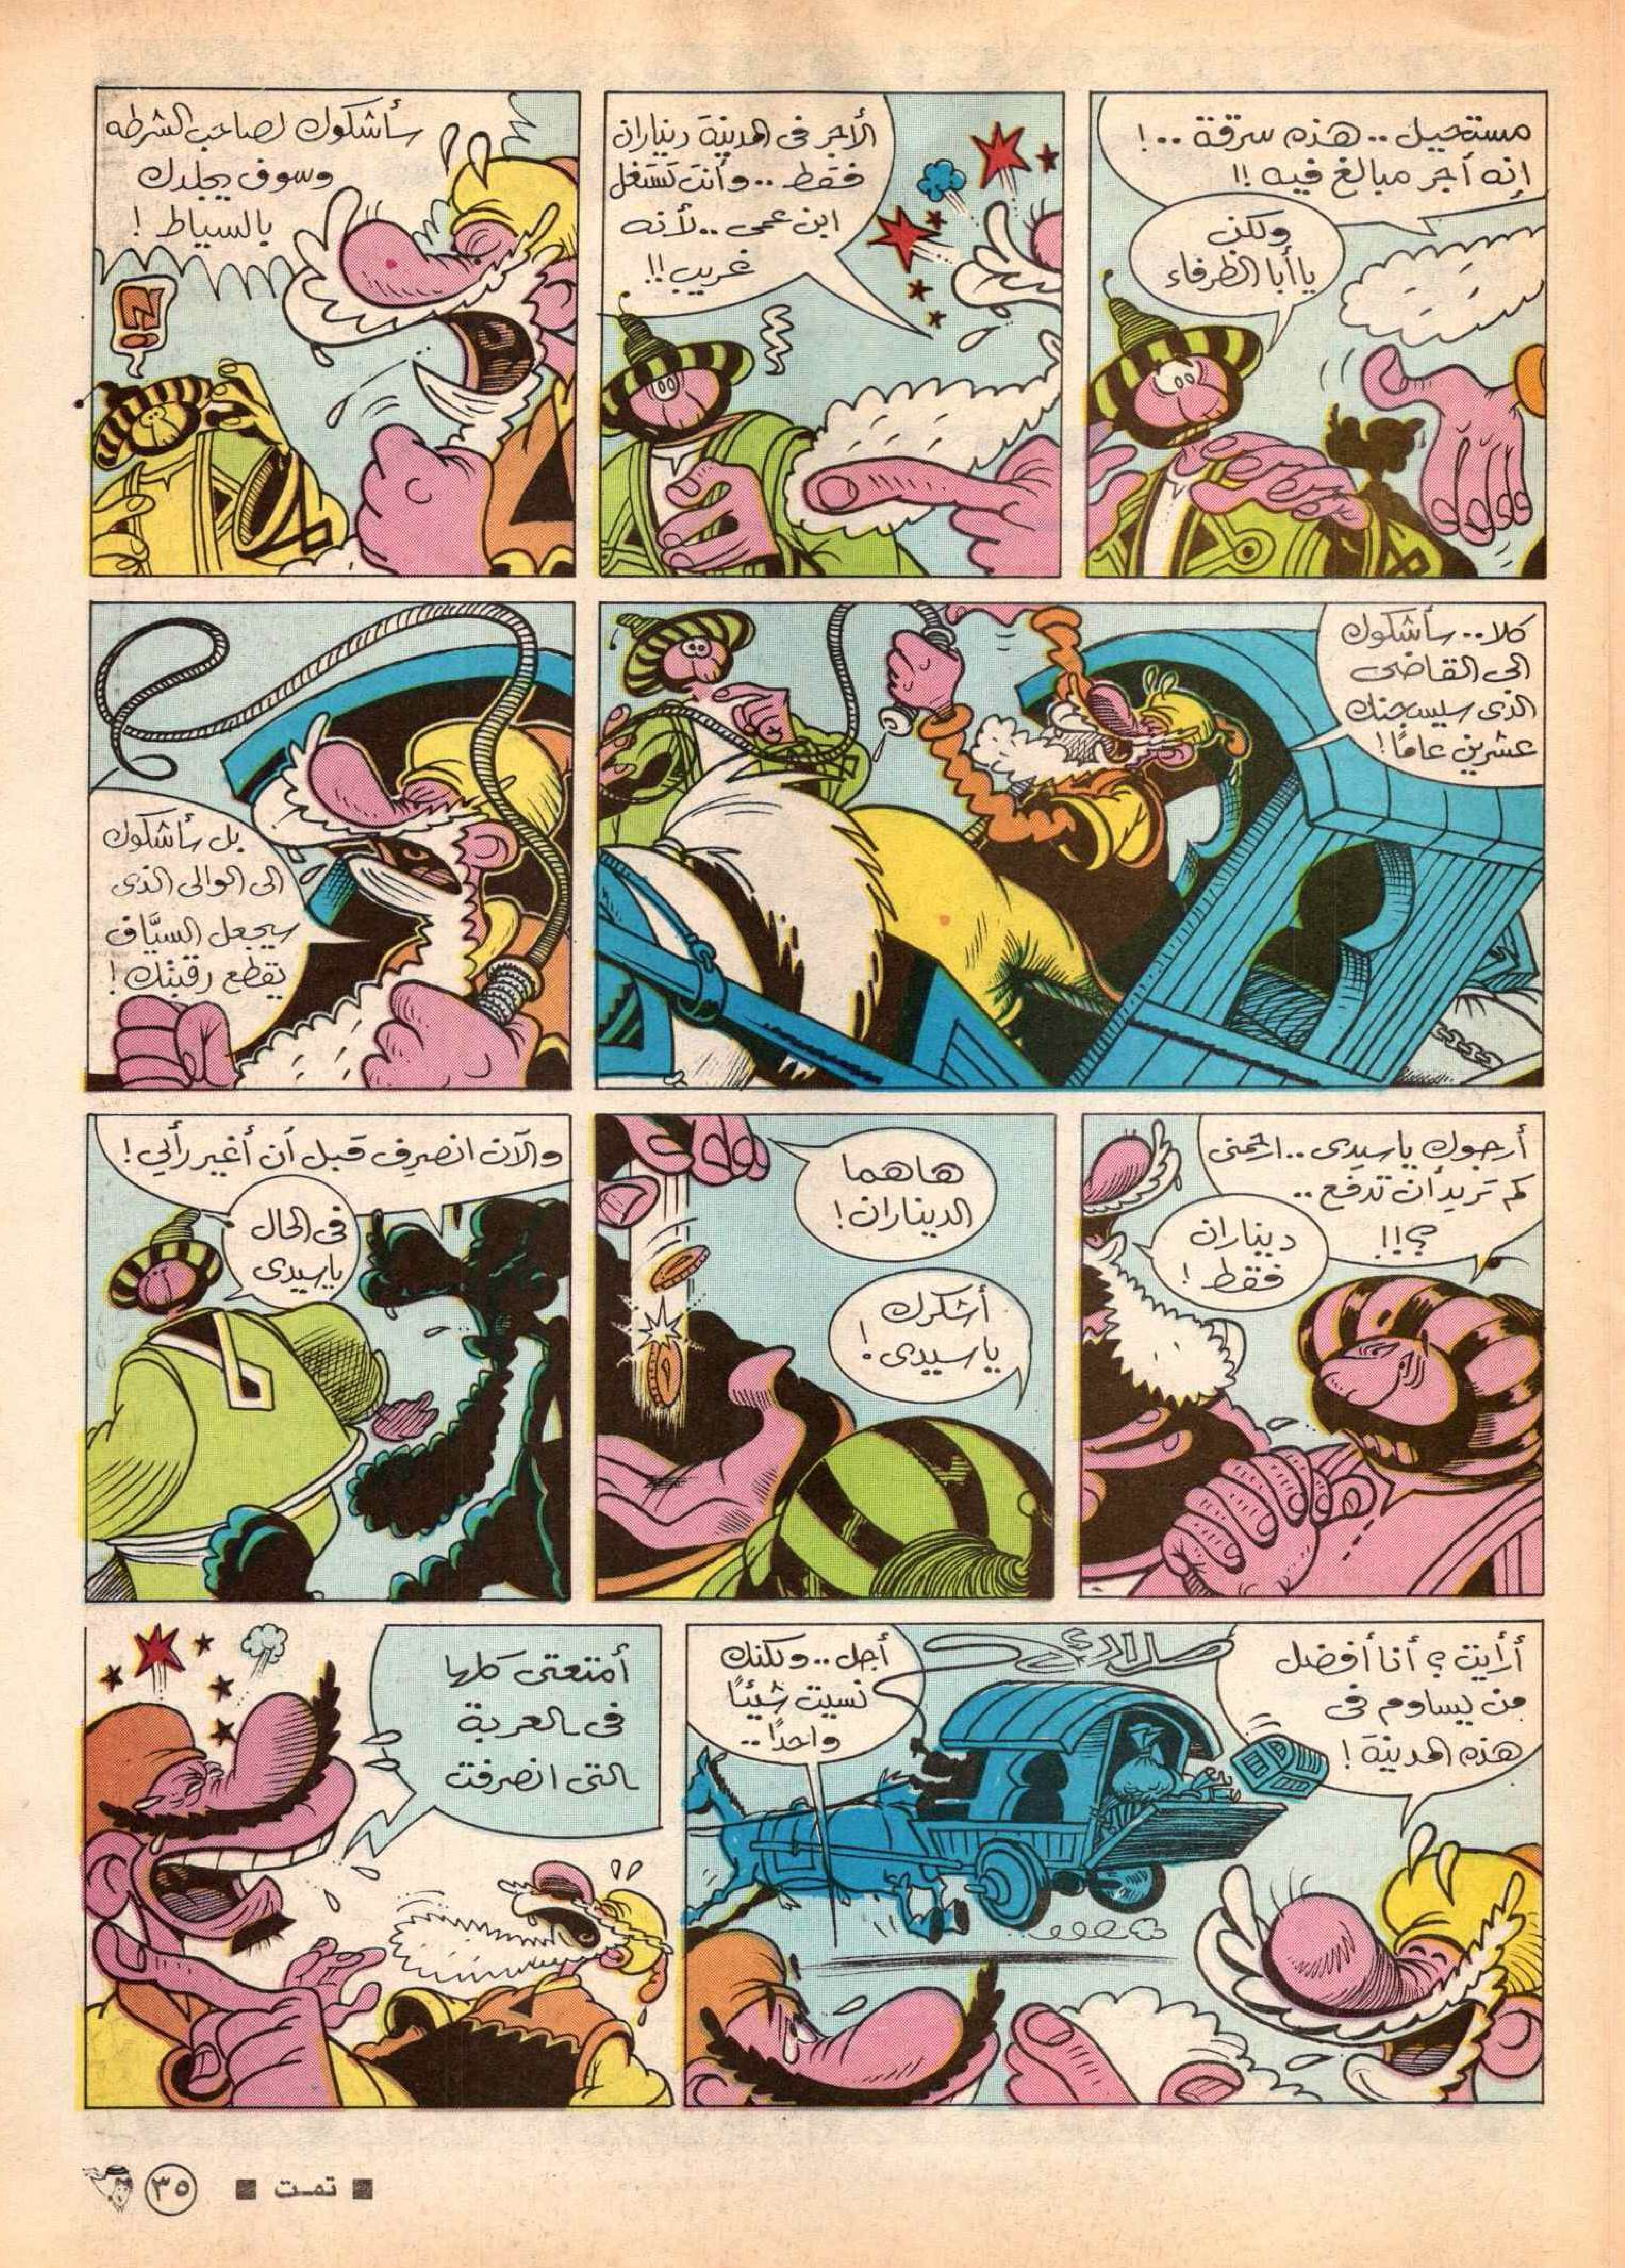 مستحيل .. هذه سرقة ..!
إنه أجر مبالغ فيه !!
ولكن
يا أبا الظرفاء
الأجر فى المدينة ديناران
فقط .. وأنت تستغل
ابن عمى .. لأنه
غريب !!
سأشكوك لصاحب الشرطه
وسوف يجلدك
بالسياط !
كلا .. سأشكوك
الى القاضى
الذى سيسجنك
عشرين عامًا !
بل سأشكوك
الى الوالى الذى
سيجعل السيَّاف
يقطع رقبتك !
أرجوك يا سيدى .. ارحمنى
كم تريد أن تدفع ..
؟!!
ديناران
فقط !
هاهما
الديناران !
أشكرك
يا سيدى !
والآن انصرف قبل أن أغير رأيي !
فى الحال
يا سيدى
أرأيت ؟ أنا أفضل
من يساوم فى
هذه المدينة !
أجل .. ولكنك
نسيت شيئًا
واحدًا ..
أمتعتى كلها
فى العربة
التى انصرفت
■ تمت ■
٣٥